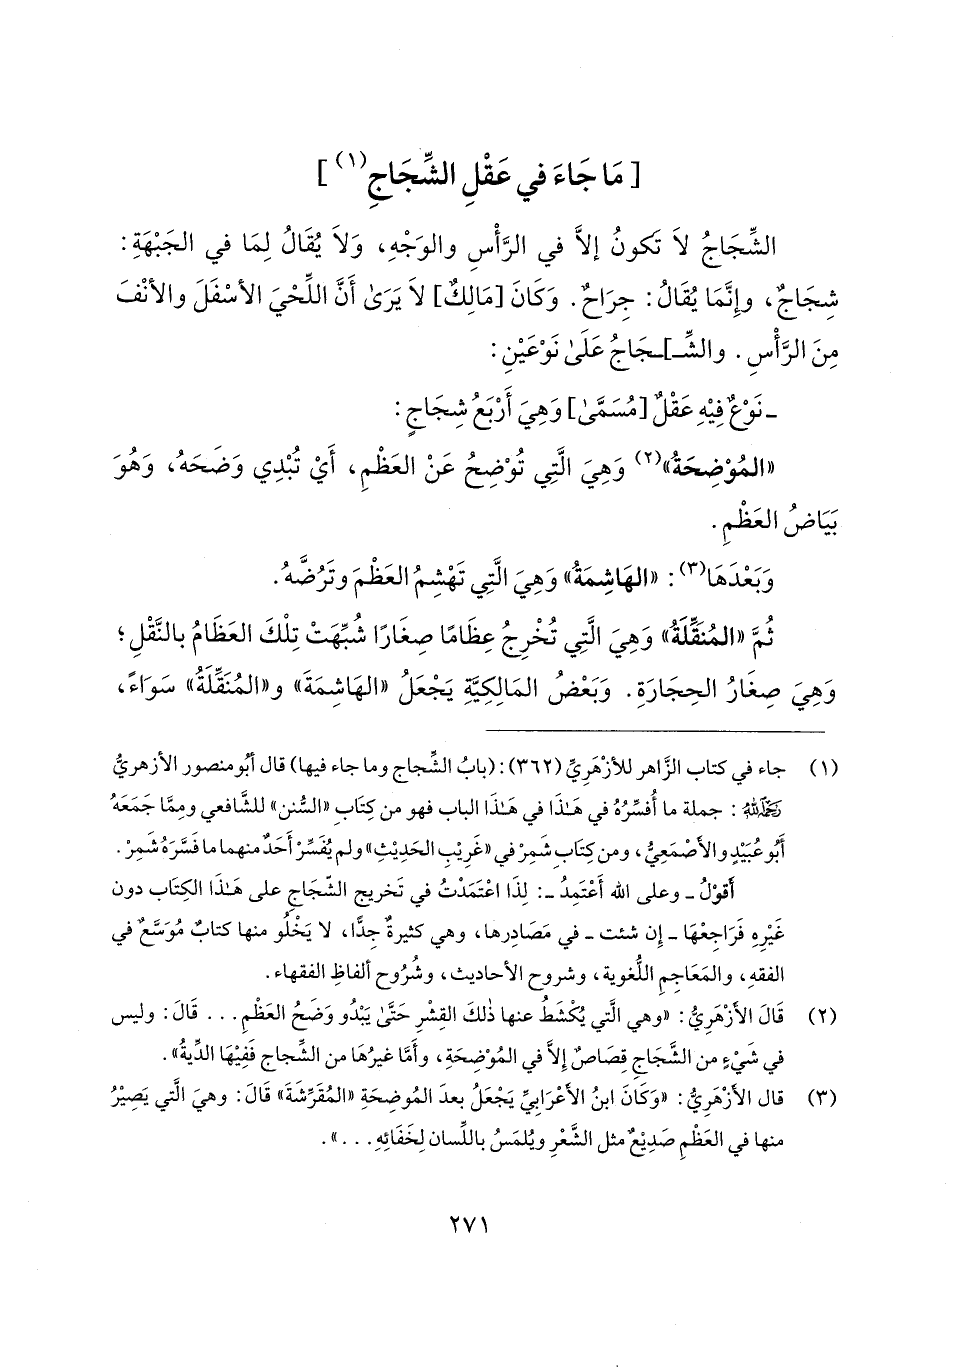 [ مَا جَاءَ في عَقْلِ الشِّجَاجِ(١) ]
الشِّجَاجُ لاَ تَكونُ إلاَّ في الرَّأْسِ والوَجْهِ، وَلاَ يُقَالُ لِمَا في الجَبْهَةِ:
شِجَاجٌ، وإنَّمَا يُقَالُ: جِرَاحٌ. وَكَانَ [مَالِكٌ] لاَ يَرَىٰ أَنَّ اللَّحْيَ الأسْفَلَ والأنْفَ
مِنَ الرَّأْسِ. والشِّـ]ـجَاجُ عَلَىٰ نَوْعَيْنِ:
ـ نَوْعٌ فِيْهِ عَقْلٌ [مُسَمَّىٰ] وَهِيَ أَرْبَعُ شِجَاجٍ:
«المُوْضِحَةُ»(٢) وَهِيَ الَّتِي تُوْضِحُ عَنْ العَظْمِ، أَيْ تُبْدِي وَضَحَهُ، وَهُوَ
بَيَاضُ العَظْمِ.
وَبَعْدَهَا(٣): «الهَاشِمَةُ» وَهِيَ الَّتِي تَهْشِمُ العَظْمَ وتَرُضَّهُ.
ثُمَّ «المُنَقِّلَةُ» وَهِيَ الَّتِي تُخْرِجُ عِظَامًا صِغَارًا شُبِّهَتْ تِلْكَ العَظَامُ بالنَّقْلِ؛
وَهِيَ صِغَارُ الحِجَارَةِ. وَبَعْضُ المَالِكِيَّةِ يَجْعَلُ «الهَاشِمَةَ» و«المُنَقِّلَةُ» سَوَاءً،
(١) جاء في كتاب الزَّاهر للأزْهَرِيِّ (٣٦٢): (بابُ الشِّجاج وما جاء فيها) قال أبُو منصور الأزهريُّ
رَحِمَهُ اللهُ: جملة ما أُفسِّرُهُ في هَـٰذا في هَـٰذا الباب فهو من كِتابِ «السُّنن» للشَّافعي وممَّا جَمَعَهُ
أَبُو عُبَيْدٍ والأصْمَعِيُّ، ومن كِتابِ شَمِرْ في «غَرِيْبِ الحَدِيْثِ» ولم يُفَسِّرْ أحَدٌ منهما ما فسَّرَهُ شَمِرْ.
أَقولُ ـ وعلى الله أَعْتَمِدُ ـ: لِذَا اعْتَمَدْتُ في تَخريج الشّجَاج على هَـٰذا الكِتاب دون
غَيْرِه فَرَاجِعْهَا ـ إن شئت ـ في مَصَادِرها، وهي كثيرةٌ جِدًّا، لا يَخْلُو منها كتابٌ مُوَسَّعٌ في
الفقهِ، والمَعَاجِمِ اللُّغوية، وشروح الأحاديث، وشُرُوح ألفاظِ الفقهاء.
(٢) قَالَ الأَزْهَرِيُّ: «وهي الَّتي يُكْشَطُ عنها ذٰلكَ القِشْرِ حَتَّىٰ يَبْدُو وَضَحُ العَظْمِ... قَالَ: وليس
في شَيْءٍ من الشَّجَاجِ قِصَاصٌ إلاَّ في المُوْضِحَةِ، وأَمَّا غيرُهَا من الشِّجاج فَفِيْهَا الدِّيةُ».
(٣) قال الأَزْهَرِيُّ: «وَكَانَ ابنُ الأعْرَابيِّ يَجْعَلُ بعدَ المُوضِحَةِ «المُقَرِّشَةَ» قَالَ: وهيَ الَّتي يَصِيْرُ
منها في العَظْمِ صَدِيْعٌ مثل الشَّعْرِ ويُلمَسُ باللِّسان لِخَفَائِهِ...».
٢٧١